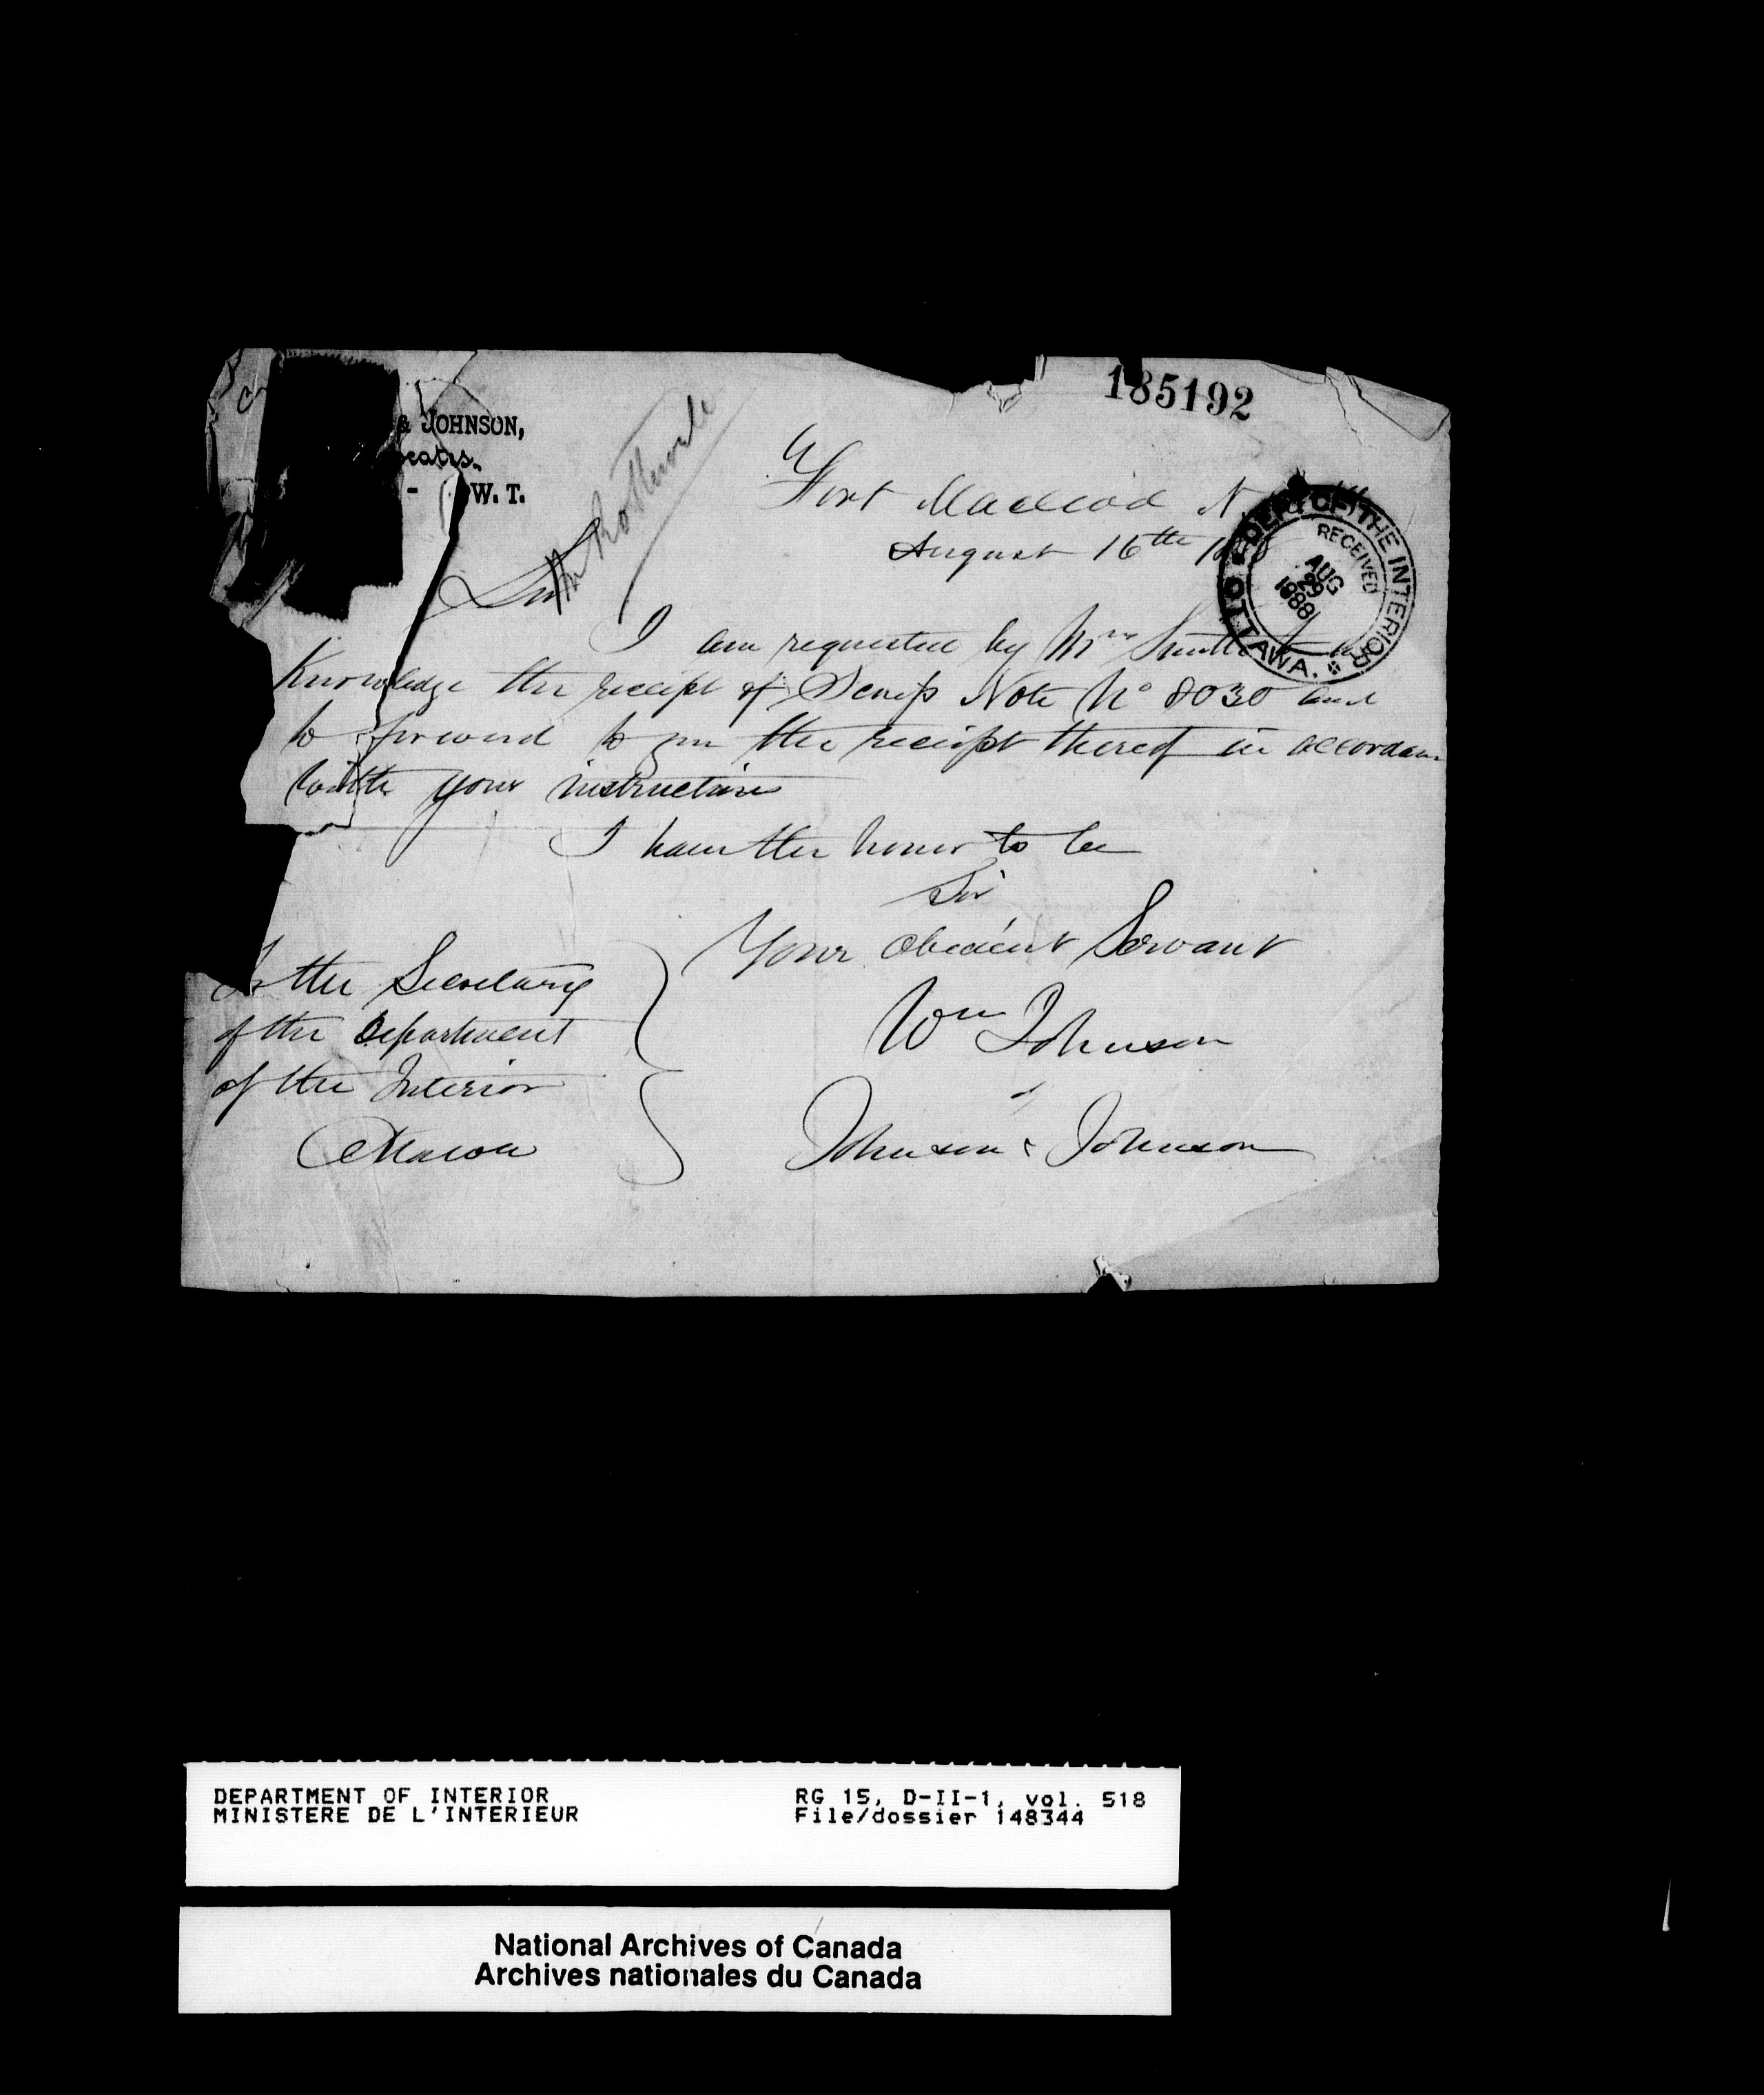 185192
& JOHNSON,
- W. T.
Mr Rothwell
Fort Macleod N.
August 16th 188
Sir
I am requested by Mrs Smith to ac
knowledge the receipt of Scrip Note No 8030 and
to forward to you the receipt thereof in accordance
with your instructions
I have the honor to be
Sir
Your obedient Servant
Wm Johnson
of
Johnson & Johnson
To the Secretary
of the Department
of the Interior
Ottawa
DEPT. OF THE INTERIOR
RECEIVED
AUG
29
1888
OTTAWA.
DEPARTMENT OF INTERIOR
MINISTERE DE L'INTERIEUR
RG 15, D-II-1, vol. 518
File/dossier 148344
National Archives of Canada
Archives nationales du Canada